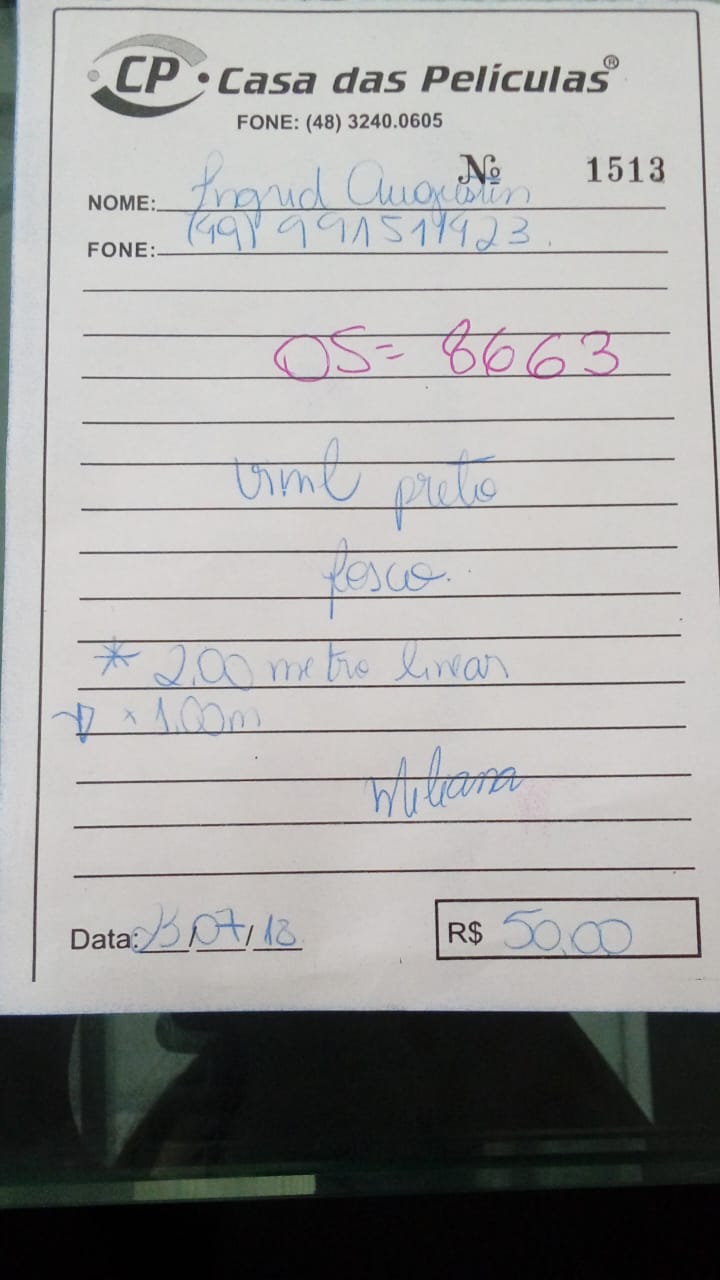 CP • Casa das Películas®
FONE: (48) 3240.0605
Nº 1513
NOME: Ingrid Augustin
FONE: (49) 991511923.
OS= 8663
vinil preto
fosco.
* 2,00 metro linear
x 1,00m
Data: 23/07/18
R$ 50,00